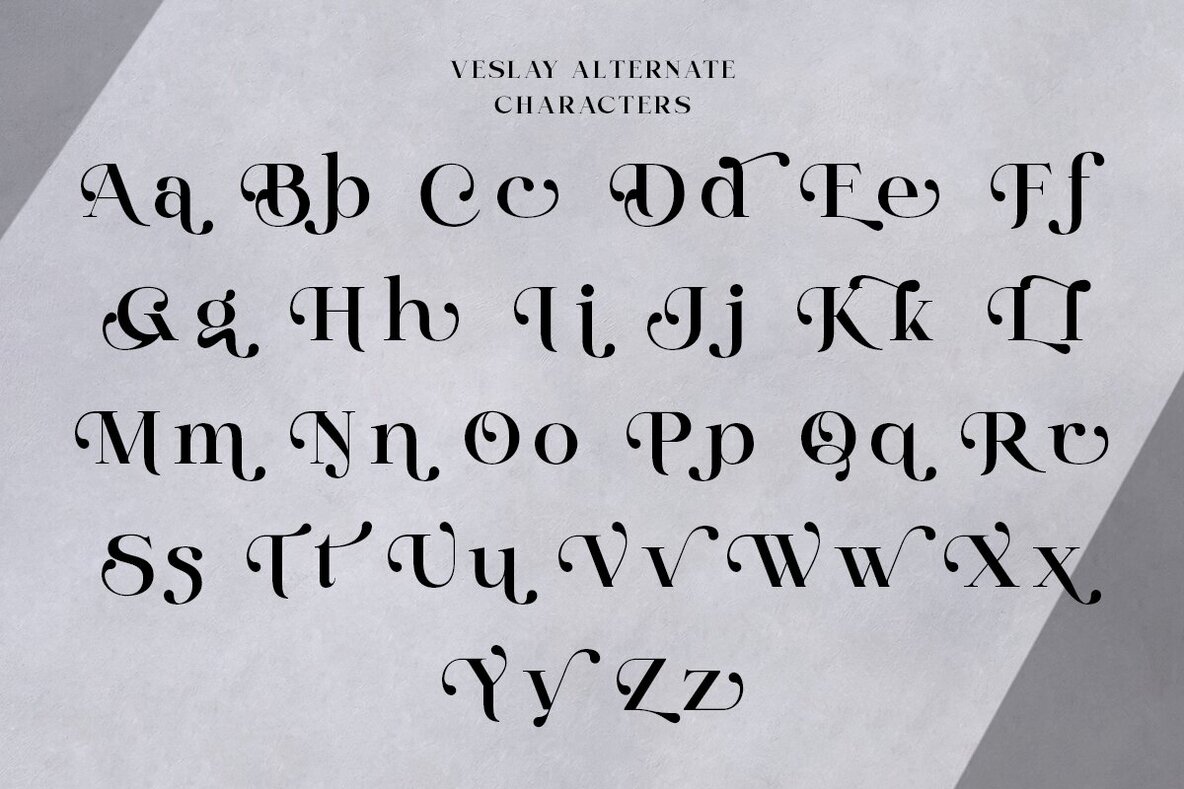 VESLAY ALTERNATE
CHARACTERS
Aa Bb Cc Dd Ee Ff
Gg Hh Ii Jj Kk Ll
Mm Nn Oo Pp Qq Rr
Ss Tt Uu Vv Ww Xx
Yy Zz